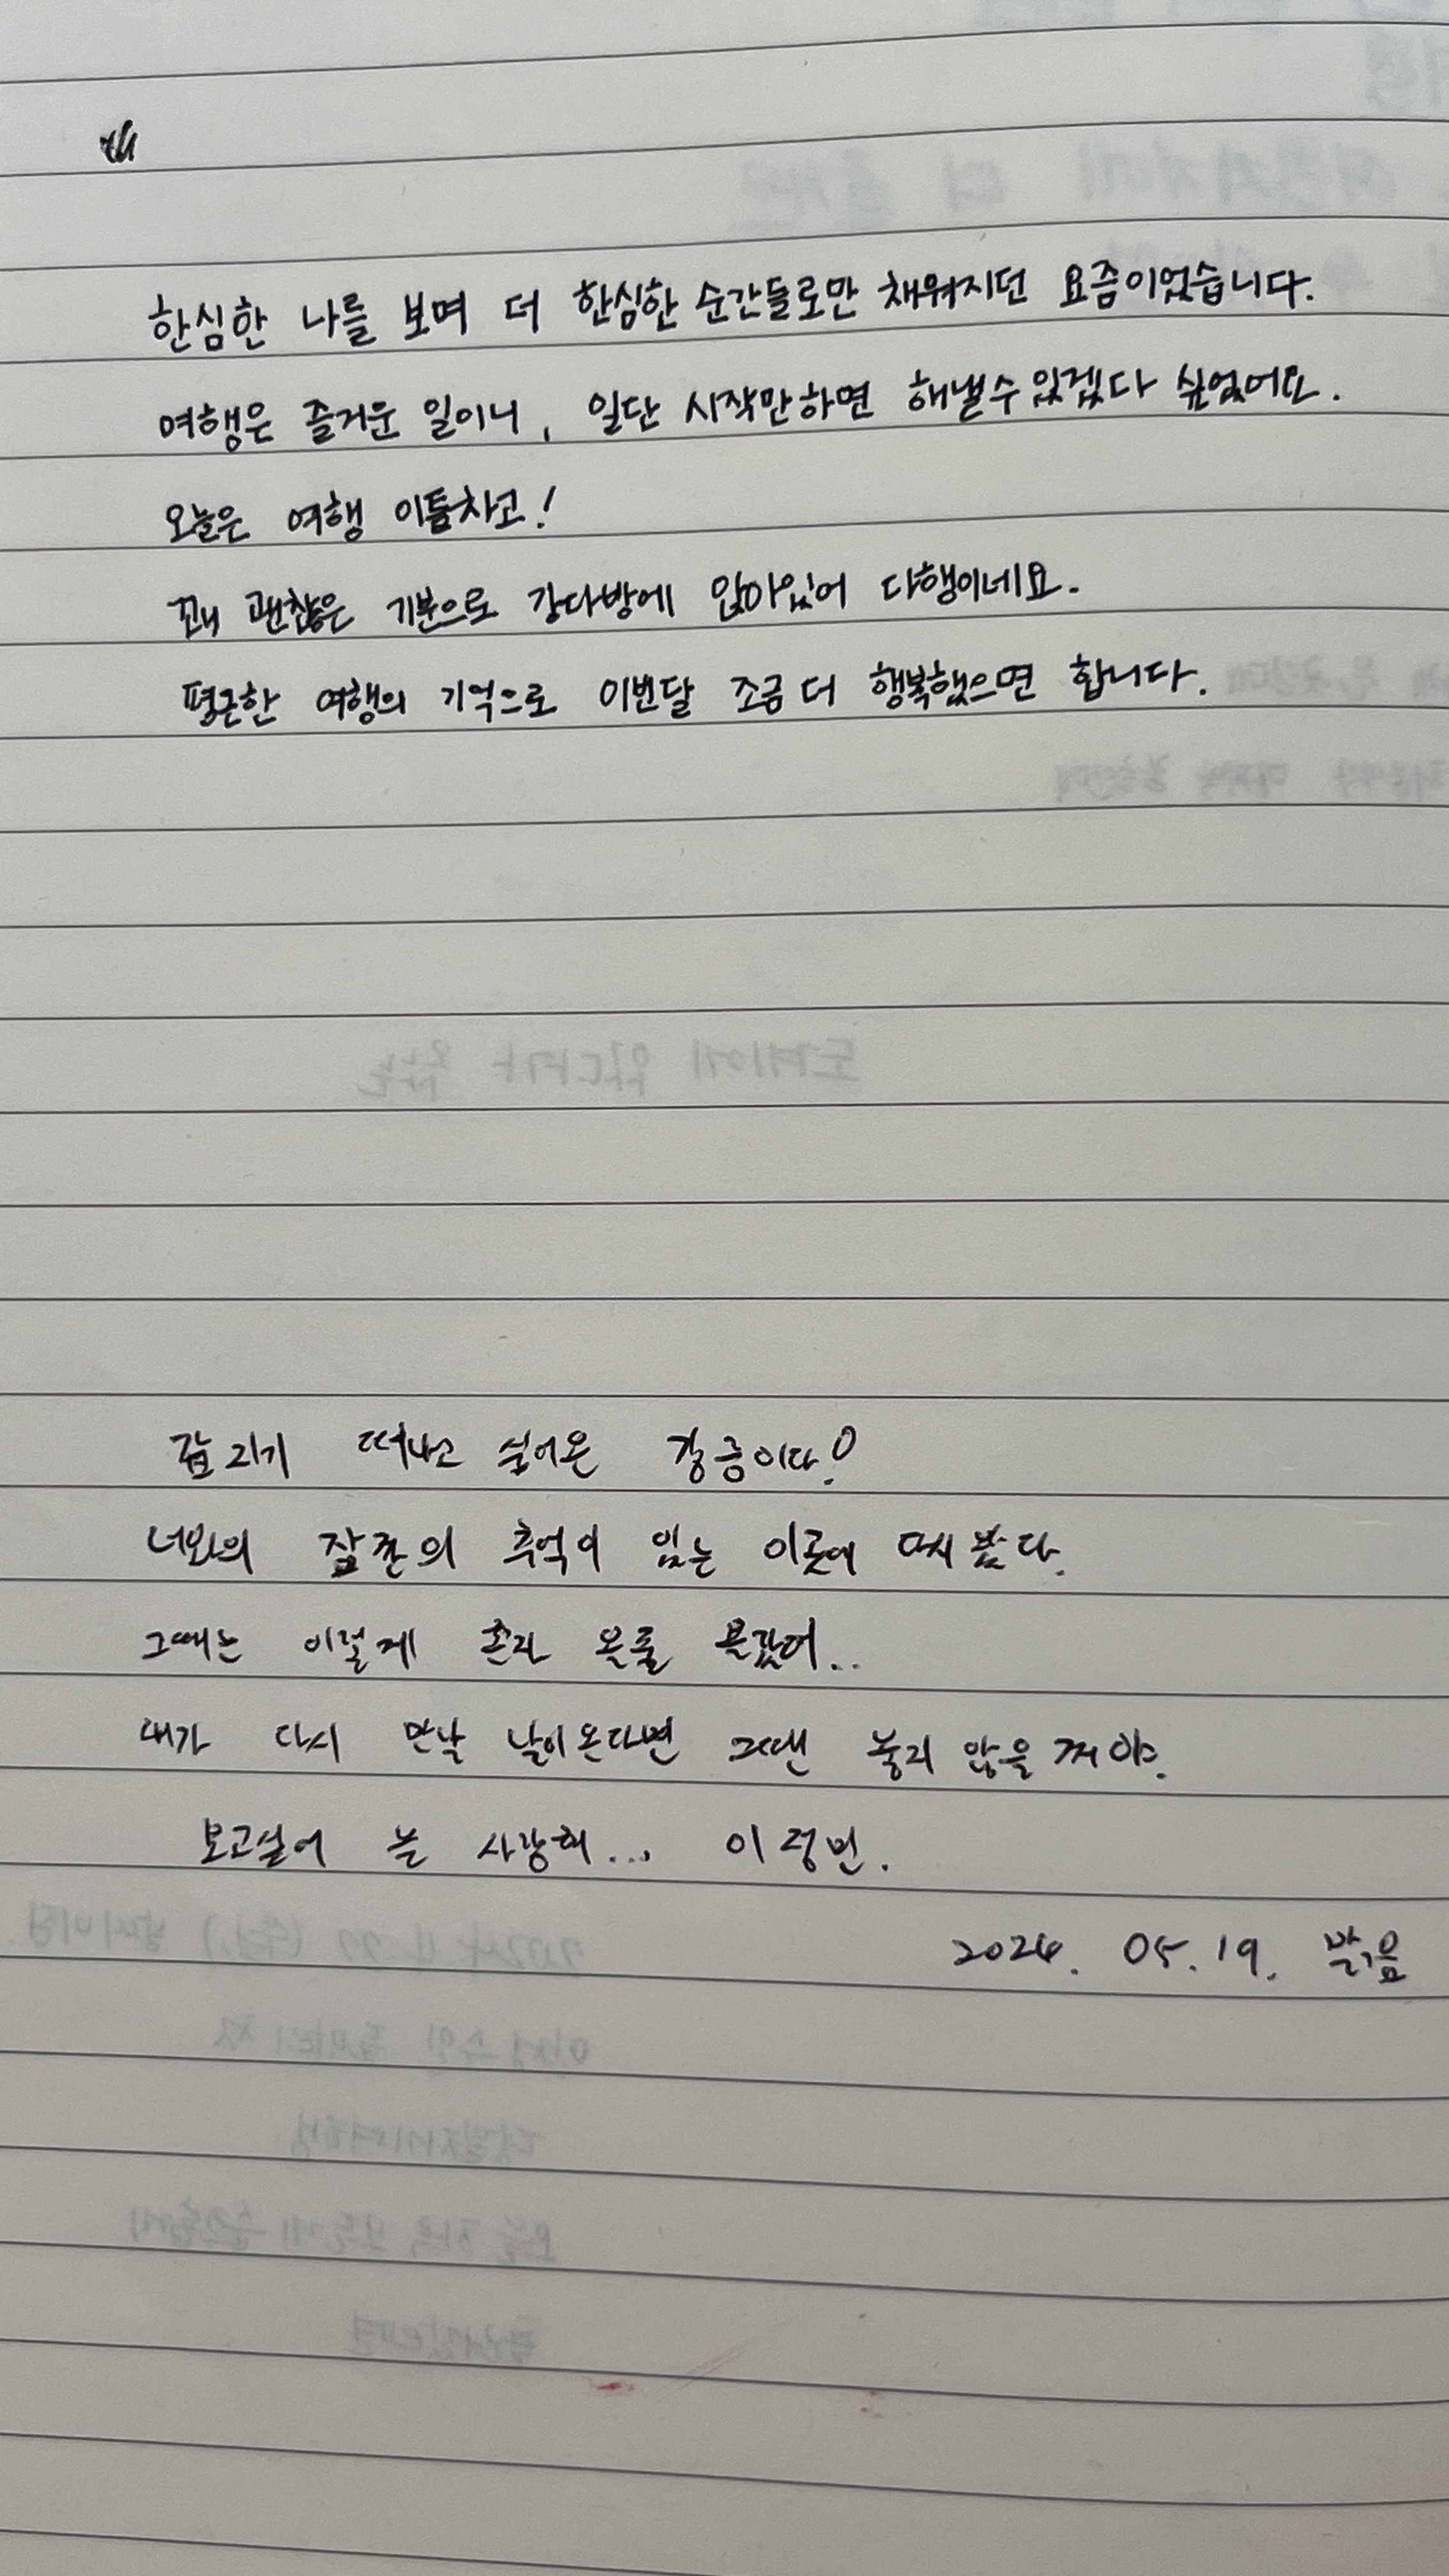 한심한 나를 보며 더 한심한 순간들로만 채워지던 요즘이었습니다.
여행은 즐거운 일이니, 일단 시작만하면 해낼수있겠다 싶었어요.
오늘은 여행 이틀차고!
꽤 괜찮은 기분으로 강다방에 앉아있어 다행이네요.
평온한 여행의 기억으로 이번달 조금 더 행복했으면 합니다.
갑자기 떠나고 싶어온 강릉이다!
너와의 잠깐의 추억이 있는 이곳에 다시 왔다.
그때는 이렇게 혼자 올줄 몰랐어..
내가 다시 만날 날이온다면 그땐 놓지 않을 꺼야.
보고싶어 늘 사랑해... 이정민.
2024. 05. 19. 밝음